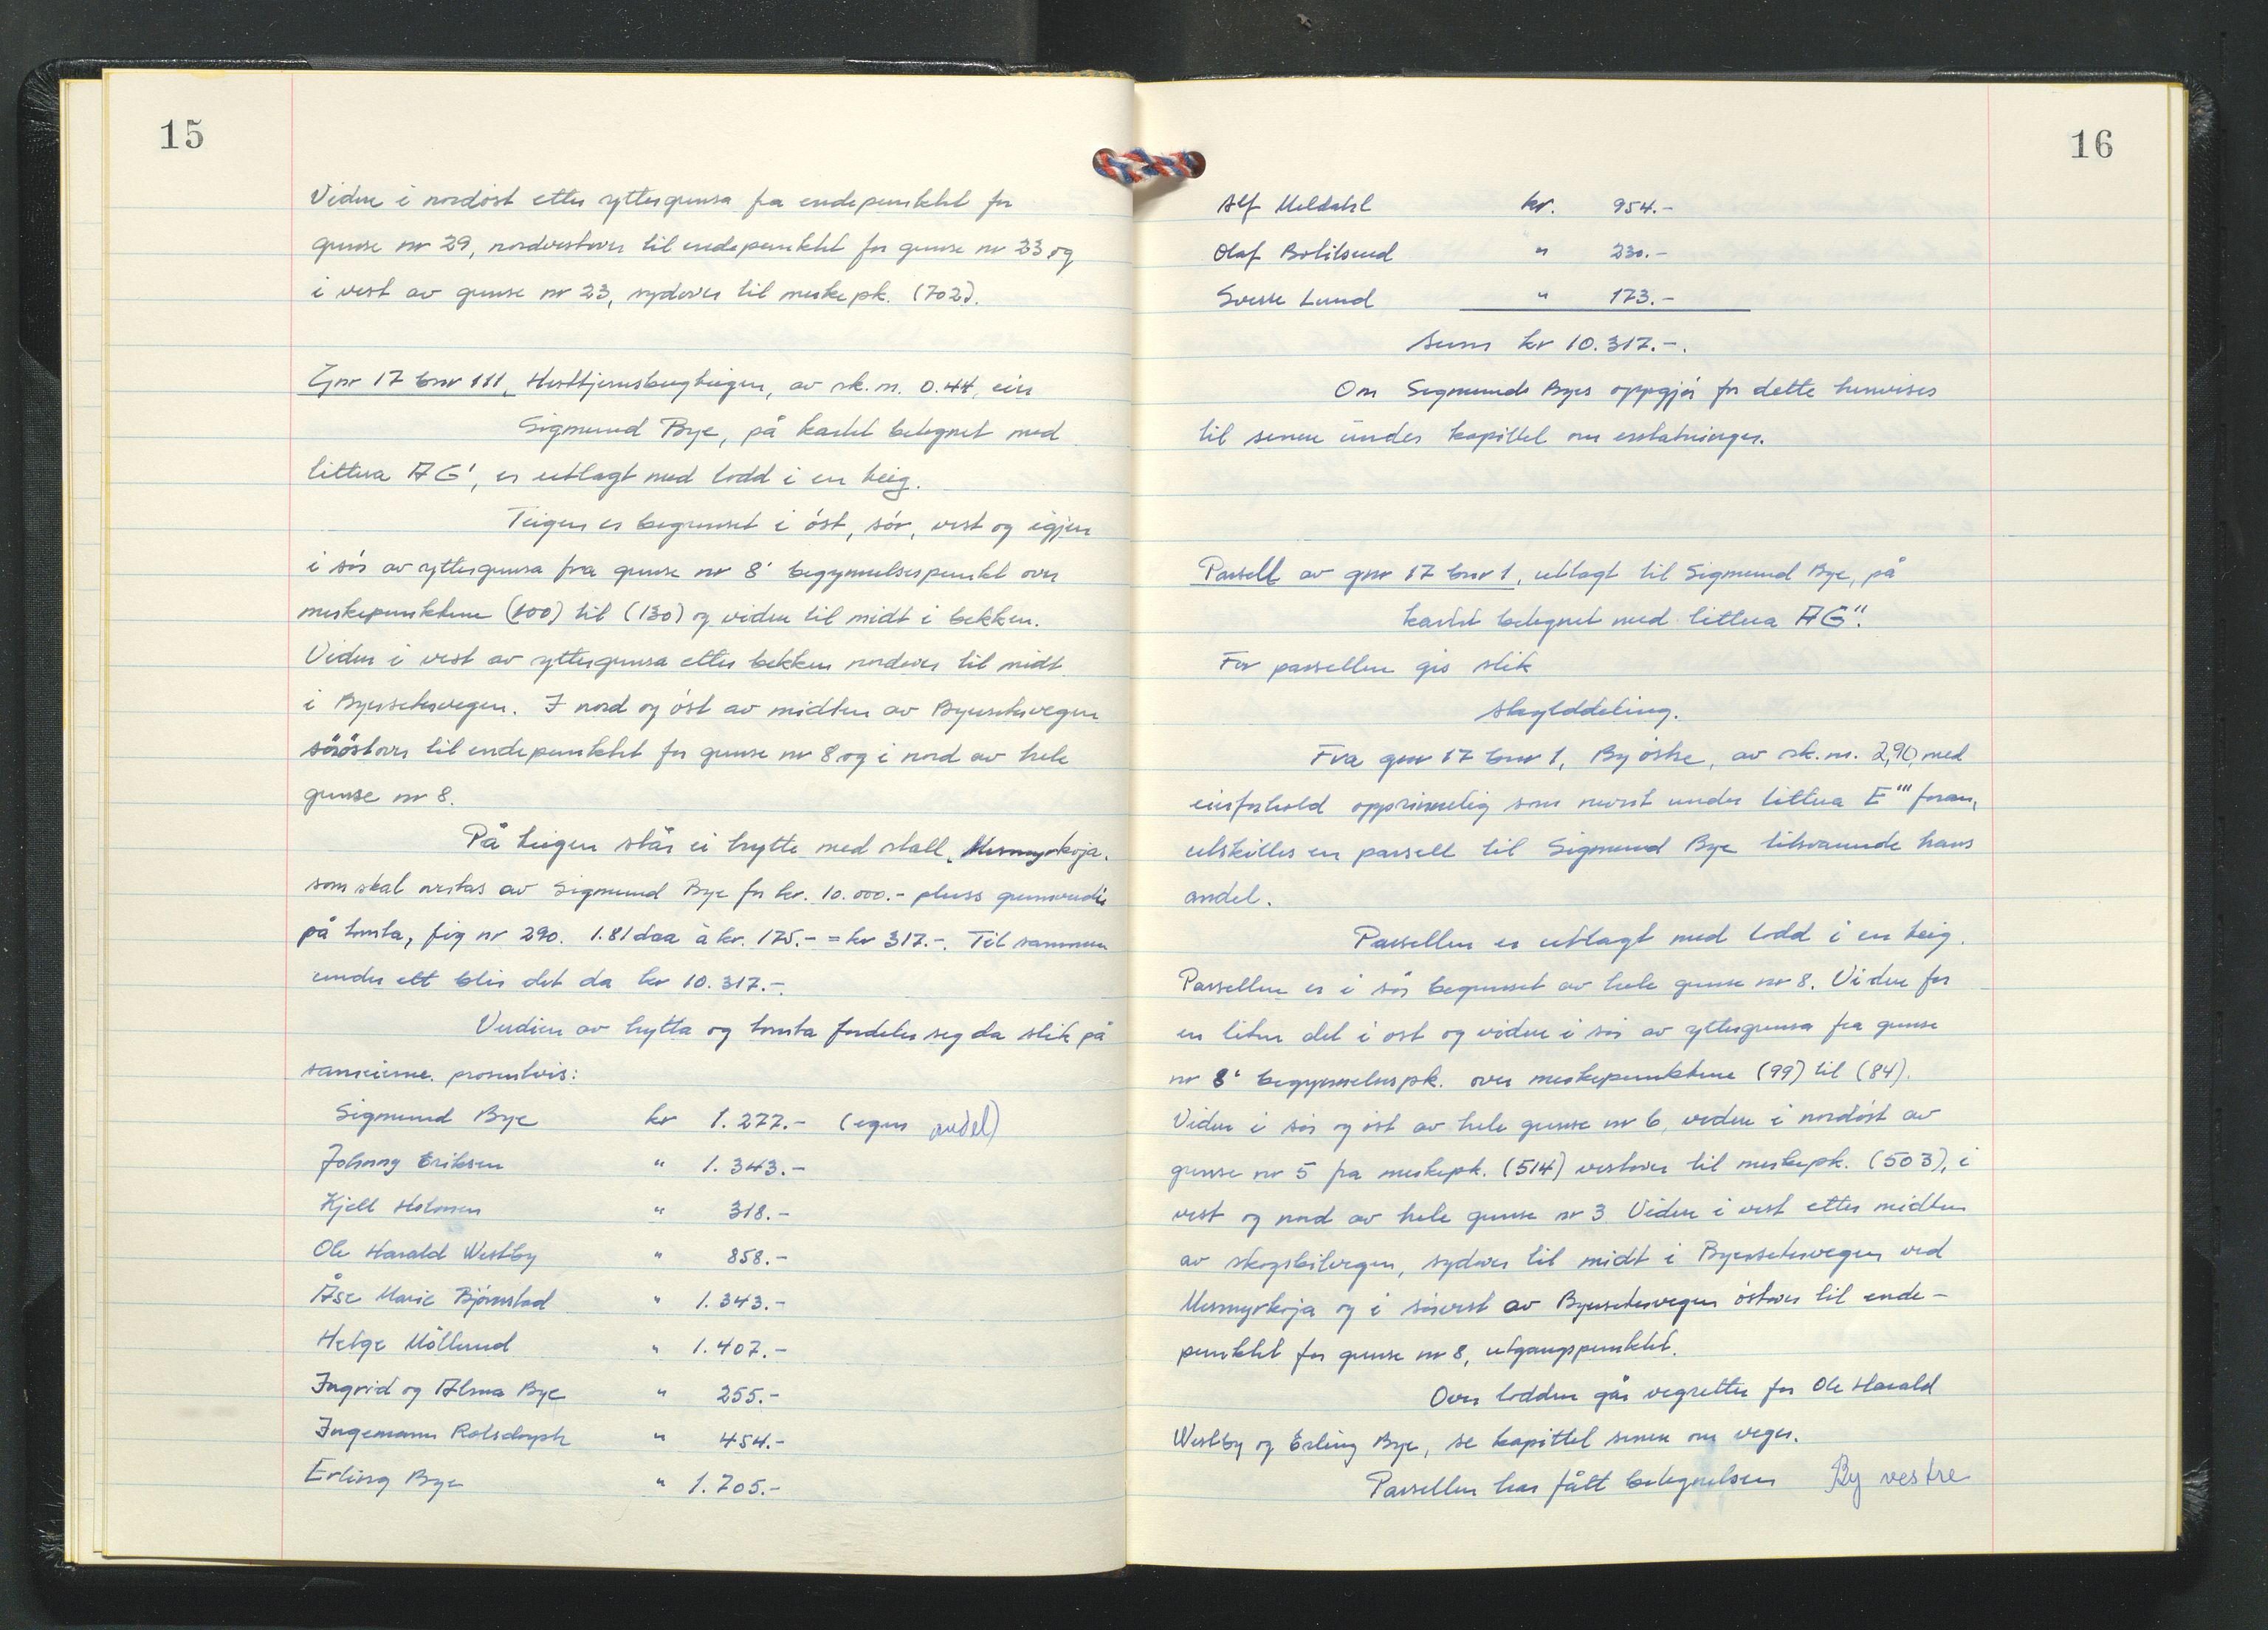 15
Videre i nordöst etter yttergrensa fra endepunktet for
grense nr 29, nordvestover til endepunktet for grense nr 23 og
i vest av grense nr 23, sydover til merkepk. (702).
Gnr 17 bnr 111, Hesttjernsbergteigen, av sk.m. 0.44, eier
Sigmund Bye, på kartet betegnet med
littera AG', er utlagt med lodd i en teig.
Teigen er begrenset i öst, sör, vest og igjen
i sör av yttergrensa fra grense nr 8' begynnelsespunkt over
merkepunktene (100) til (130) og videre til midt i bekken.
Videre i vest av yttergrensa etter bekken nordover til midt
i Byesetervegen. I nord og öst av midten av Byesetervegen
söröstover til endepunktet for grense nr 8 og i nord av hele
grense nr 8.
På teigen står ei hytte med stall, Mesmyrkoja,
som skal overtas av Sigmund Bye for kr. 10.000.- pluss grunnverdi
på tomta, fig nr 290. 1.81 daa à kr. 175.- = kr 317.-. Til sammen
under ett blir det da kr 10.317.-.
Verdien av hytta og tomta fordeler seg da slik på
sameierne prosentvis:
Sigmund Bye kr 1.277.- (egen andel)
Johnny Eriksen " 1.343.-
Kjell Holmen " 318.-
Ole Harald Westby " 858.-
Åse Marie Björnstad " 1.343.-
Helge Möllerud " 1.407.-
Ingrid og Alma Bye " 255.-
Ingemann Rotsdoyth " 454.-
Erling Bye " 1.705.-
16
Alf Meldahl kr. 954.-
Olaf Botilsrud " 230.-
Sverre Lund " 173.-
Sum kr 10.317.-.
Om Sigmund Byes oppgjör for dette henvises
til senere under kapittel om erstatninger.
Parsell av gnr 17 bnr 1, utlagt til Sigmund Bye, på
kartet betegnet med littera AG".
For parsellen gis slik
skylddeling.
Fra gnr 17 bnr 1, By östre, av sk.m. 2,90, med
eierforhold opprinnelig som nevnt under littera E''' foran,
utskilles en parsell til Sigmund Bye tilsvarende hans
andel.
Parsellen er utlagt med lodd i en teig.
Parsellen er i sör begrenset av hele grense nr 8. Videre for
en liten del i öst og videre i sör av yttergrensa fra grense
nr 8' begynnelsespk. over merkepunktene (99) til (84).
Videre i sör og öst av hele grense nr 6, videre i nordöst av
grense nr 5 fra merkepk. (514) vestover til merkepk. (503), i
vest og nord av hele grense nr 3. Videre i vest etter midten
av skogsbilvegen, sydover til midt i Byesetervegen ved
Mesmyrkoja og i sörvest av Byesetervegen östover til ende-
punktet for grense nr 8, utgangspunktet.
Over lodden går vegretter for Ole Harald
Westby og Erling Bye, se kapittel senere om veger.
Parsellen har fått betegnelsen By vestre